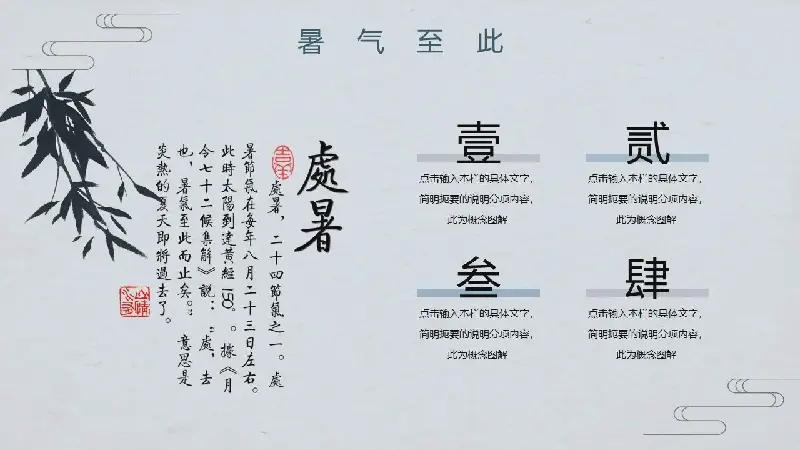 暑气至此
處暑
處暑，二十四節氣之一。處
暑節氣在每年八月二十三日左右。
此時太陽到達黃經150°。據《月
令七十二候集解》說：“處，去
也，暑氣至此而止矣。”意思是
炎熱的夏天即將過去了。
壹
点击输入本栏的具体文字，
简明扼要的说明分项内容，
此为概念图解
贰
点击输入本栏的具体文字，
简明扼要的说明分项内容，
此为概念图解
叁
点击输入本栏的具体文字，
简明扼要的说明分项内容，
此为概念图解
肆
点击输入本栏的具体文字，
简明扼要的说明分项内容，
此为概念图解